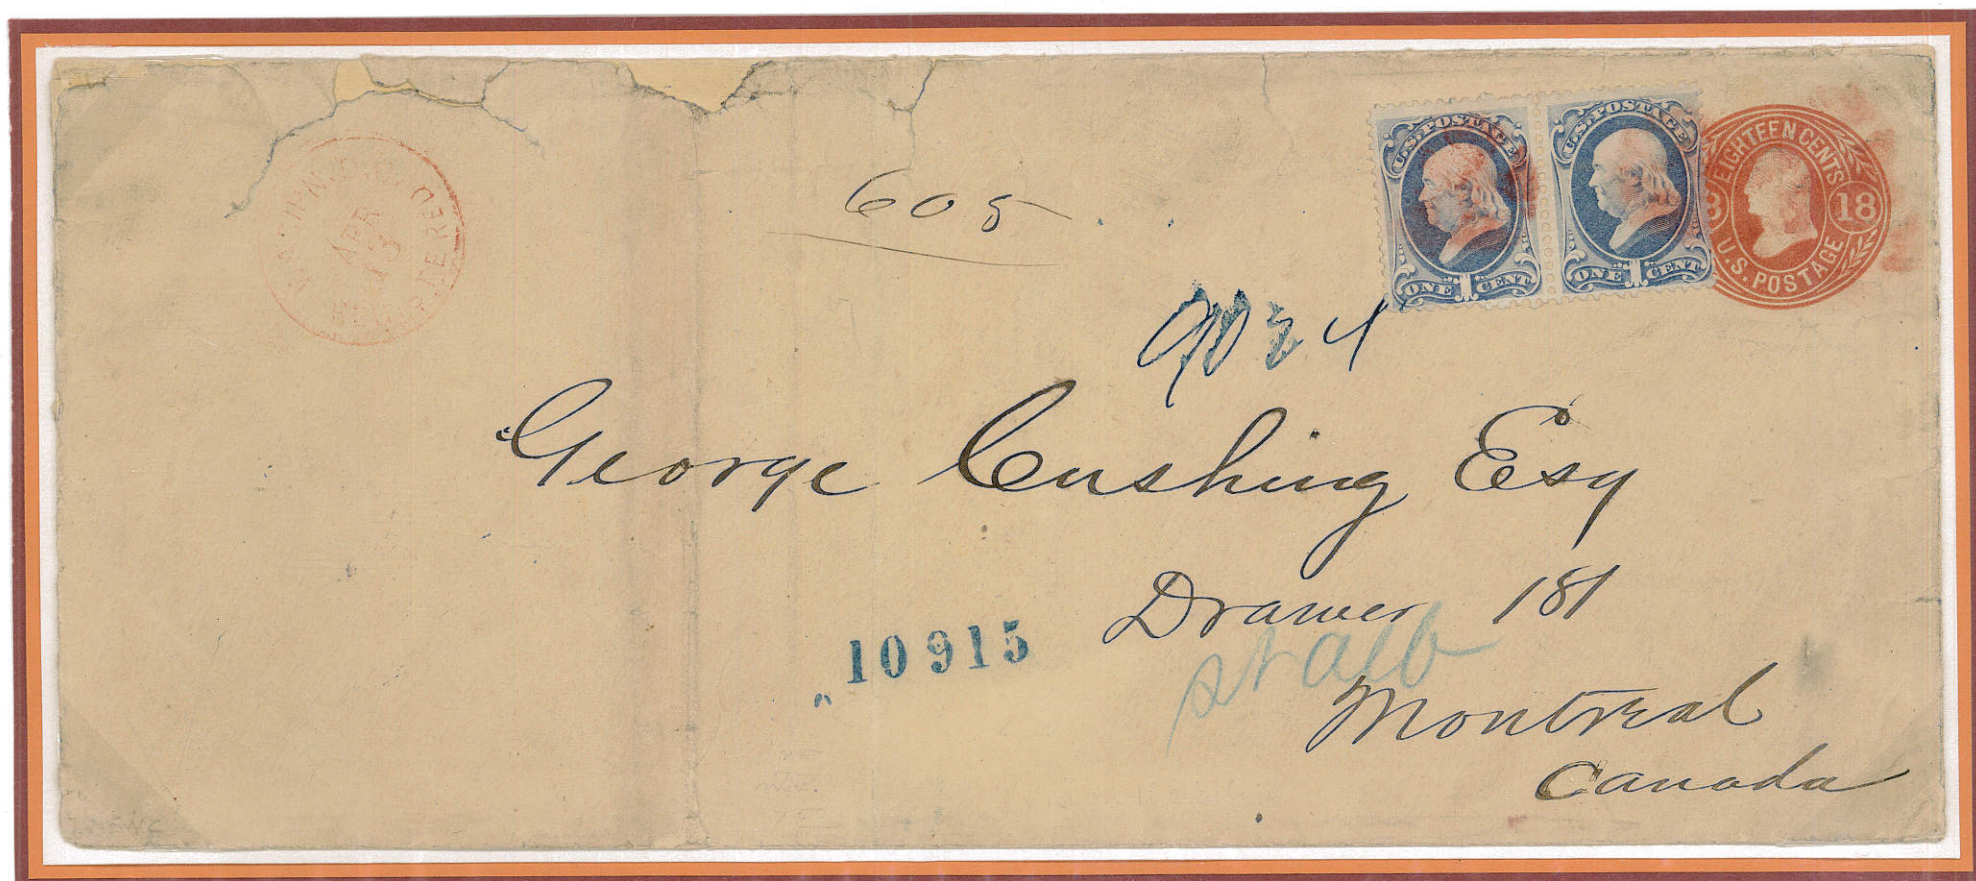 APR
13
REGISTERED
605
U.S. POSTAGE
ONE 1 CENT
U.S. POSTAGE
ONE 1 CENT
EIGHTEEN CENTS
18
U.S. POSTAGE
George Cushing Esq
Drawer 181
10915
Montreal
Canada